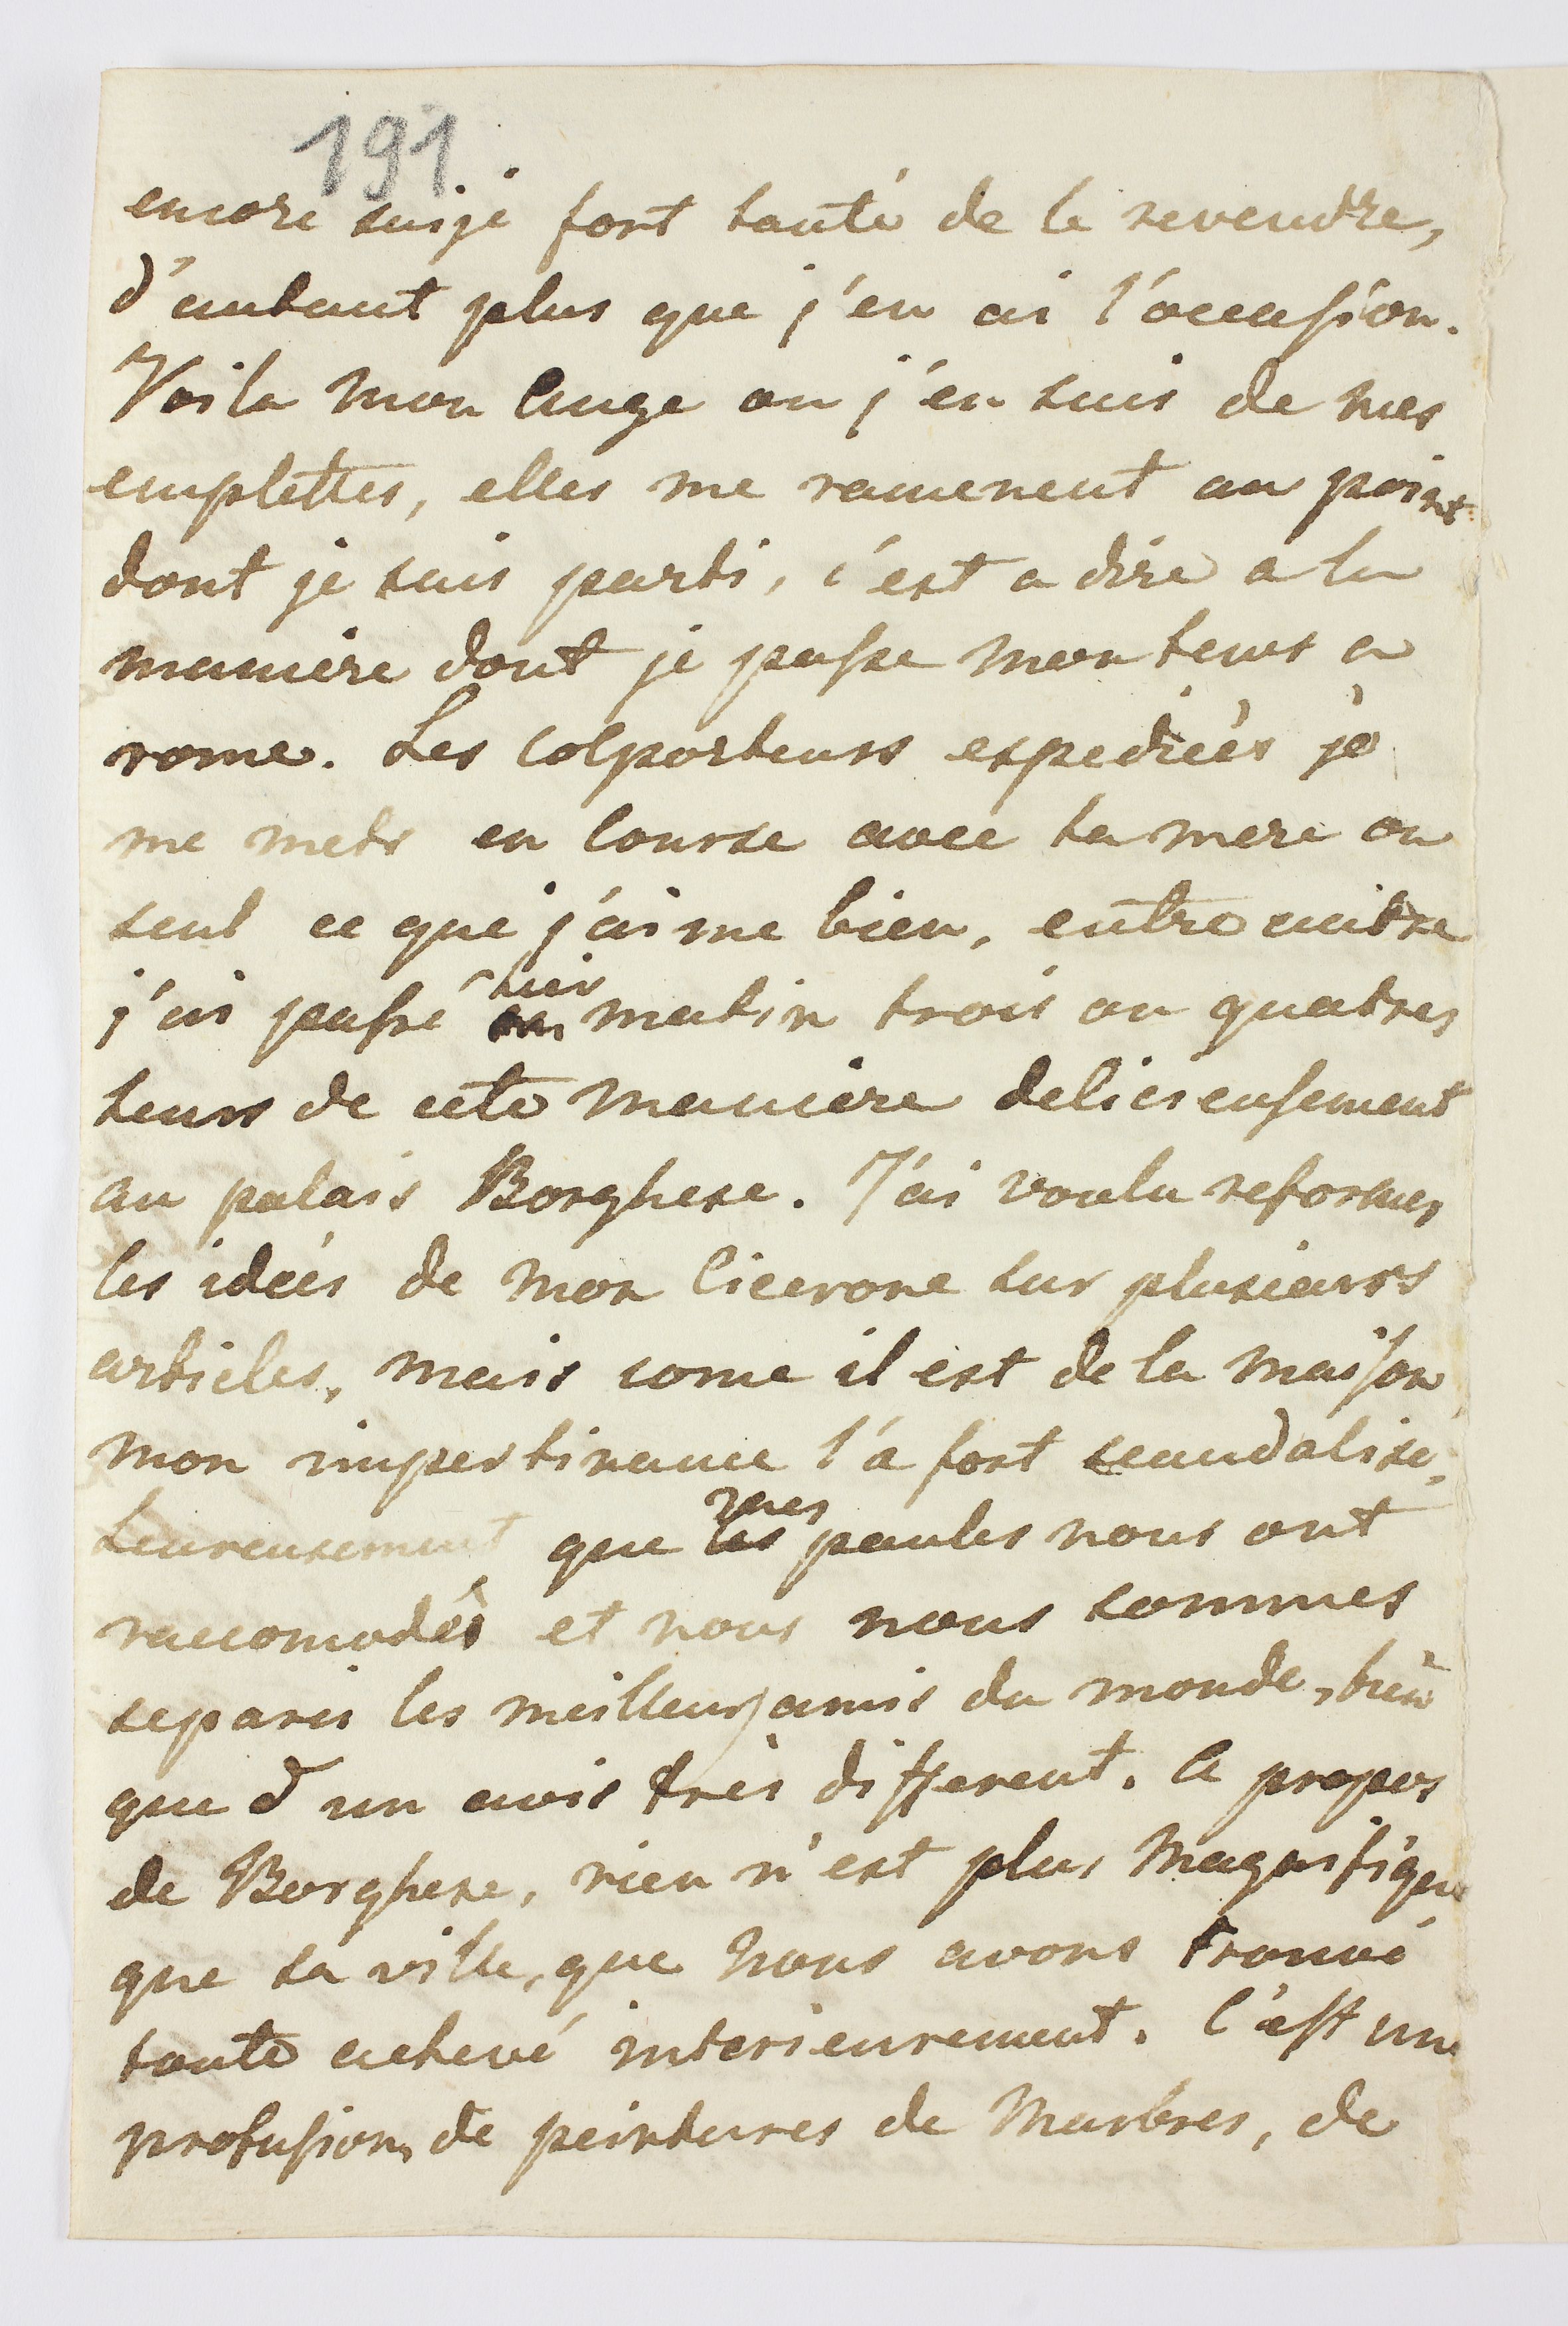 191
encore suije fort tanté de le revendre,
d'autant plus que j'en ai l'occasion.
Voila mon Ange ou j'en suis de mes
emplettes, elles me ramenent au point
dont je suis parti, c'est a dire a la
maniere dont je passe mon tems a
rome. Les Colporteurs expediées je
me mets en Course avec ta mere ou
seul ce que j'aime bien, entre autre
j'ai passé hier matin trois ou quatres
heurs de cete maniere delicieusement
au palais Borghese. J'ai voulu reformer
les idées de mon Cicerone sur plusieurs
articles, mais come il est de la maison
mon impertinance l'a fort scandalisé,
heureusement que mes paules nous ont
raccomodés et nous nous sommes
separés les meilleurs amis du monde, bien
que d un avis très different. A propos
de Borghese, rien n'est plus magnifique
que sa ville, que nous avons trouvé
toute achevé interieurement. C'est une
profusion de peintures de Marbres, de